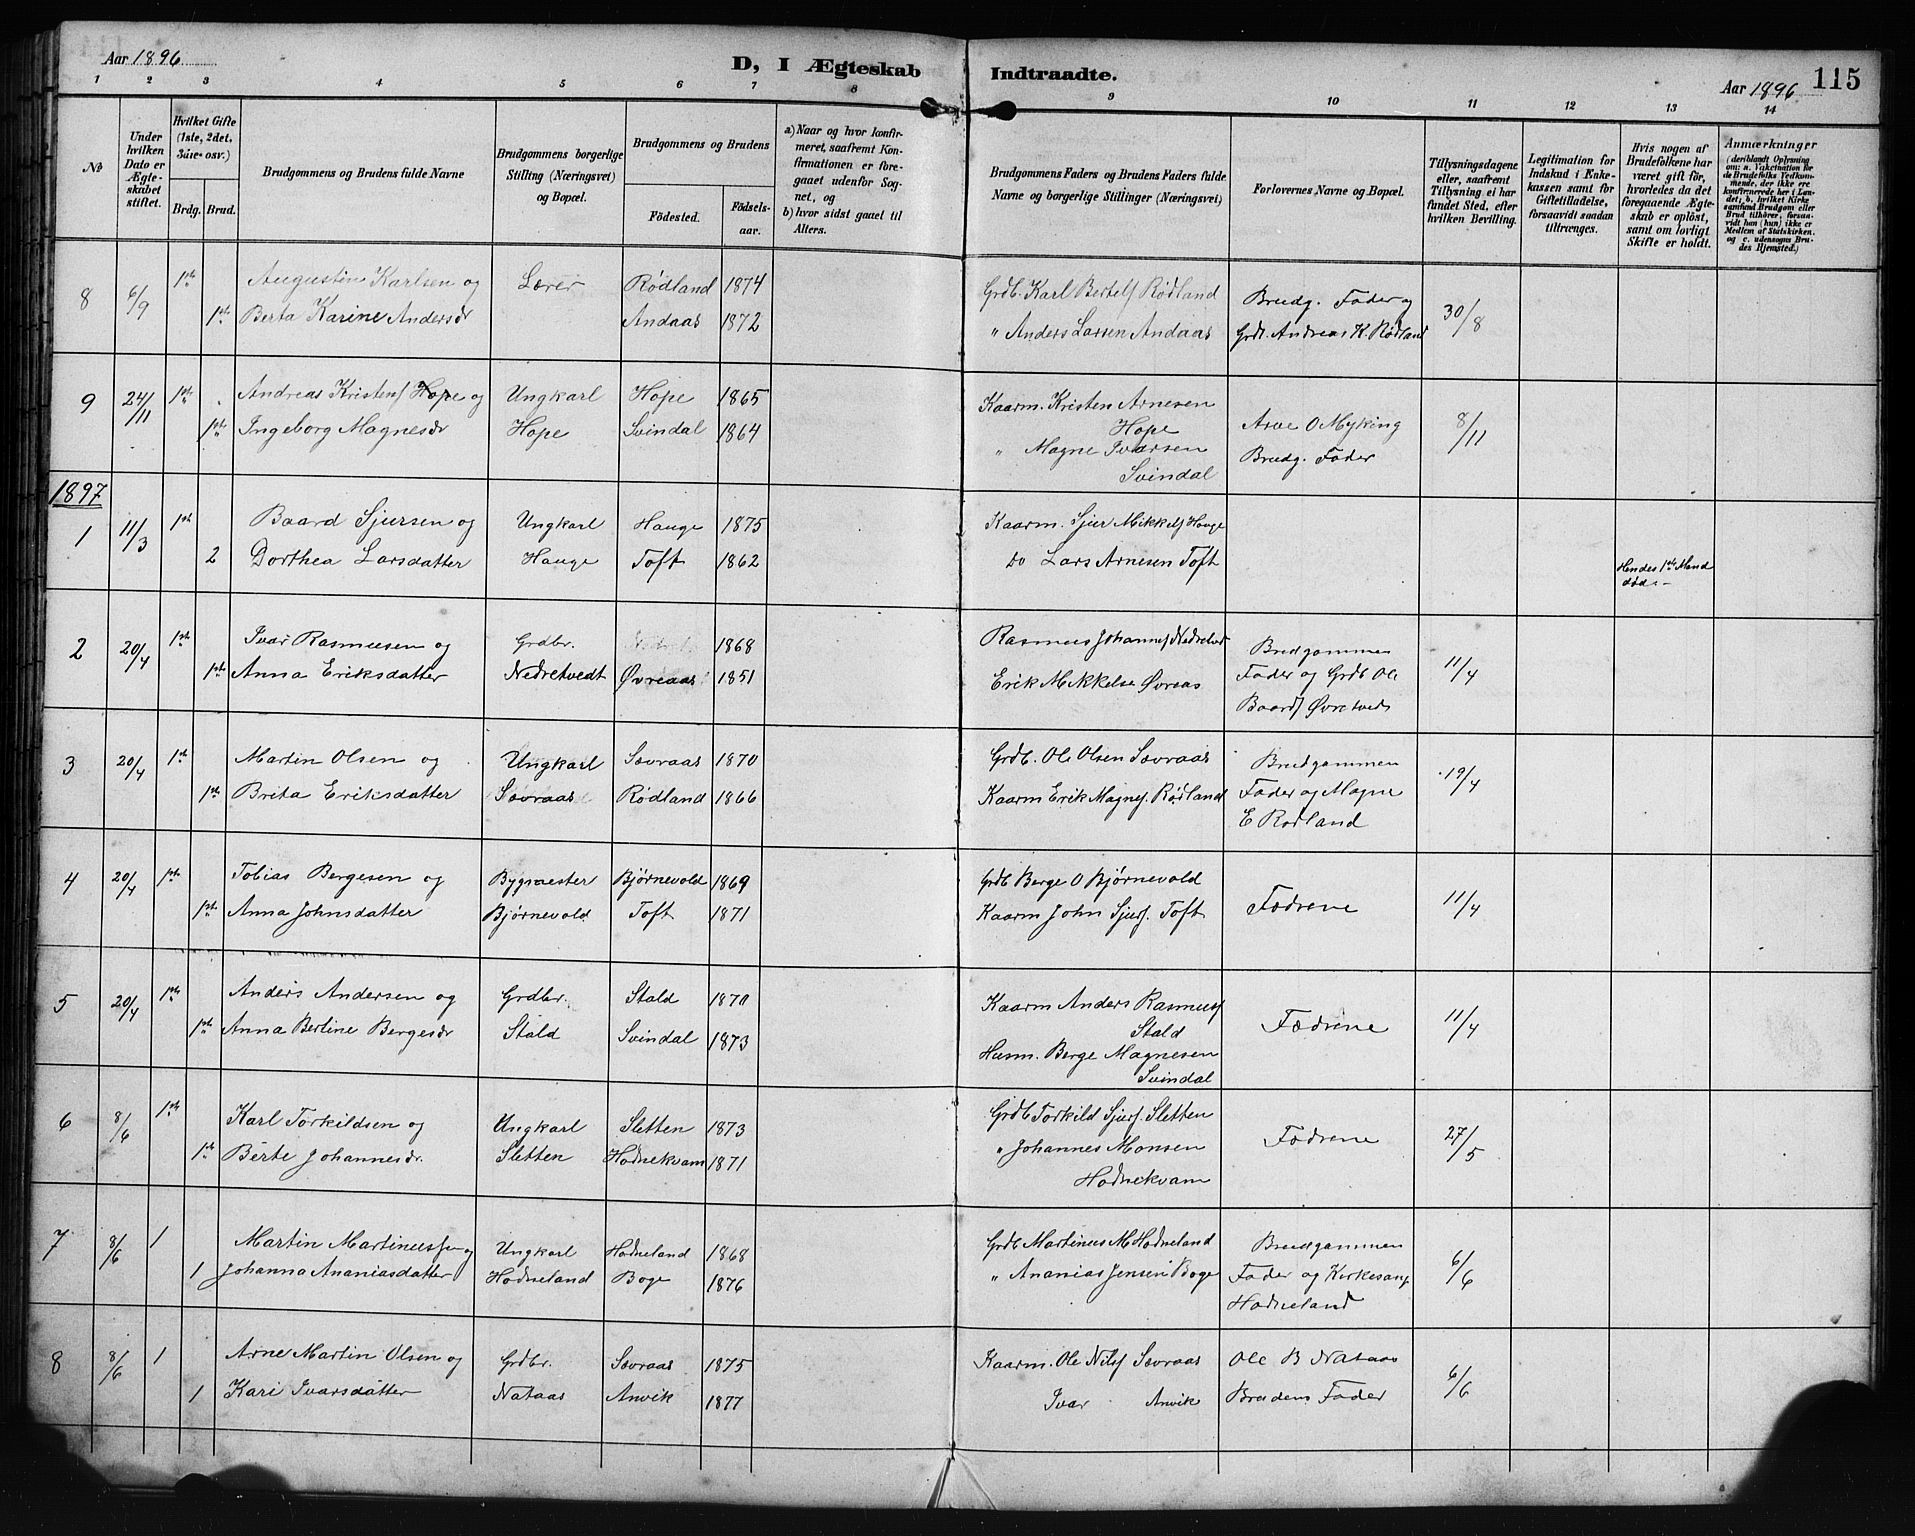 Aar 1896 D, I Ægteskab Indtraadte. Aar 1896 115
1 2 3 4 5 6 7 8 9 10 11 12 13 14
No
Under hvilken Dato er Ægteskabet stiftet.
Hvilket Gifte (1ste, 2det, 3die osv.)
Brdg. Brud.
Brudgommens og Brudens fulde Navne
Brudgommens borgerlige Stilling (Næringsvei) og Bopæl.
Brudgommens og Brudens
Fødested. Fødselsaar.
a) Naar og hvor konfirmeret, saafremt Konfirmationen er foregaaet udenfor Sognet, og
b) hvor sidst gaaet til Alters.
Brudgommens Faders og Brudens Faders fulde Navne og borgerlige Stillinger (Næringsvei)
Forlovernes Navne og Bopæl.
Tillysningsdagene eller, saafremt Tillysning ei har fundet Sted, efter hvilken Bevilling.
Legitimation for Indskud i Enkekassen samt for Giftetilladelse, forsaavidt saadan tiltrænges.
Hvis nogen af Brudefolkene har været gift før, hvorledes da det foregaaende Ægteskab er opløst, samt om lovligt Skifte er holdt.
Anmærkninger
(deriblandt Oplysning om: a. Vaketation for de Brudefolks Vedkommende, der ikke ere konfirmerede her i Landet; b. hvilket Kirkesamfund Brudgom eller Brud tilhører, forsaavidt han (hun) ikke er Medlem af Statskirken, og c. udensogns Brudes Hjemsted.)
8 6/9 1ste Augustin Karlsen og Lærer Rødland 1874 Grdb. Karl Bertels Rødland Brudg. Fader og 30/8
1ste Berta Karine Andersdr Andaas 1872 " Anders Larsen Andaas Grdb. Andreas K. Rødland
9 24/11 1ste Andreas Kristens Hope og Ungkarl Hope 1865 Kaarm. Kristen Arnesen Hope Arve O Myking 8/11
1ste Ingeborg Magnesdr Hope Svindal 1864 " Magne Ivarsen Svindal Brudg. Fader
1897
1 11/3 1ste Baard Sjursen og Ungkarl Hauge 1875 Kaarm. Sjur Mikkels Hauge
2 Dorthea Larsdatter Hauge Toft 1862 Do Lars Arnesen Toft Hendes 1ste Mand død.
2 20/4 1ste Ivar Rasmusen og Grdbr. 1868 Rasmus Johannes Nedretvedt Brudgommen 11/4
1ste Anna Eriksdatter Nedretvedt Øvreaas 1851 Erik Mikkelse Øvreas Fader og Grdb Ole
Baards Øvretved
3 20/4 1ste Martin Olsen og Ungkarl Sævraas 1870 Grdb. Ole Olsen Sævraas Brudgommen 19/4
1ste Brita Eriksdatter Sævraas Rødland 1866 Kaarm Erik Magnes. Rødland Fader og Magne
E Rodland
4 20/4 1ste Tobias Bergesen og Bygmester Bjørnevold 1869 Grdb Berge O Bjørnevold Fædrene 11/4
1ste Anna Johnsdatter Bjørnevold Toft 1871 Kaarm John Sjurs. Toft
5 20/4 1ste Anders Andersen og Grdbr. Stald 1870 Kaarm Anders Rasmus Stald Fædrene 11/4
1ste Anna Bertine Bergesdr Stald Svindal 1873 Husm. Berge Magnesen Svindal
6 8/6 1ste Karl Torkildsen og Ungkarl Sletten 1873 Grdb Torkild Sjurs. Sletten Fædrene 27/5
1ste Berte Johannesdr. Sletten Hodnekvam 1871 " Johannes Monsen Hodnekvam
7 8/6 1 Martin Martinussen og Ungkarl Hodneland 1868 Grdb Martinus M Hodneland Brudgommen 6/6
1 Johanna Ananiasdatter Hodneland Boge 1876 " Ananias Jensen Boge Fader og Kirkesang.
Hodneland
8 8/6 1 Arne Martin Olsen og Grdbr. Sævraas 1875 Kaarm. Ole Nils Sævraas Ole B Nataas 6/6
1 Kari Ivarsdatter Nataas Anvik 1877 Ivar Anvik Brudens Fader